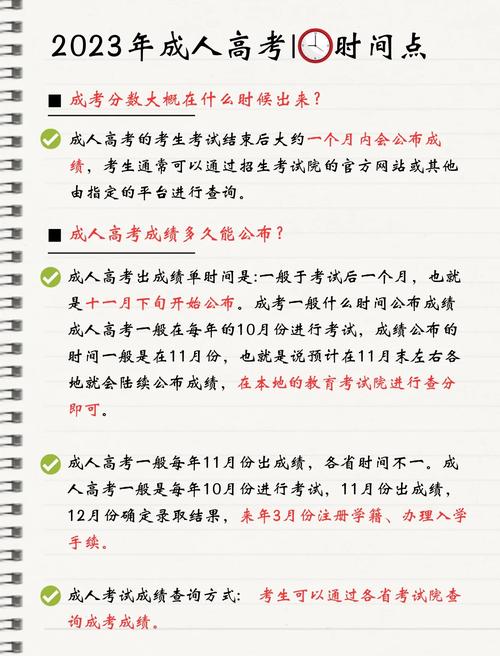 2023年成人高考|时间点
成考分数大概在什么时候出来？
成人高考的考生考试结束后大约一个月内会公布成
绩，考生通常可以通过招生考试院的官方网站或其他
由指定的平台进行查询。
成人高考成绩多久能公布？
成人高考出成绩单时间是:一般于考试后一个月，也就
是十一月下旬开始公布。成考一般什么时间公布成绩
成人高考一般在每年的10月份进行考试，成绩公布的
时间一般是在11月份，也就是说预计在11月末左右各
地就会陆续公布成绩，在本地的教育考试院进行查分
即可。
成人高考一般每年11月份出成绩，各省时间不一。成
人高考一般是每年10月份进行考试，11月份出成绩，
12月份确定录取结果，来年3月份注册学籍、办理入学
手续。
成人考试成绩查询方式： 考生可以通过各省考试院查
询成考成绩。